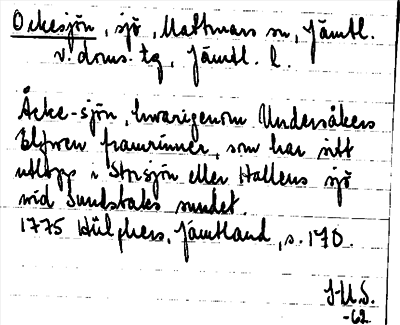 Ockesjön, sjö, Mattmars sn, Jämtl.
v. doms. tg, Jämtl. l.
Åcke-sjön, hwarigenom Undersåkers
Elfwen framrinner, som har sitt
utlopp i Storsjön eller Hallens sjö
wid Sundsbaks sundet.
1775 Hülphers, Jämtland, s. 170.
-62